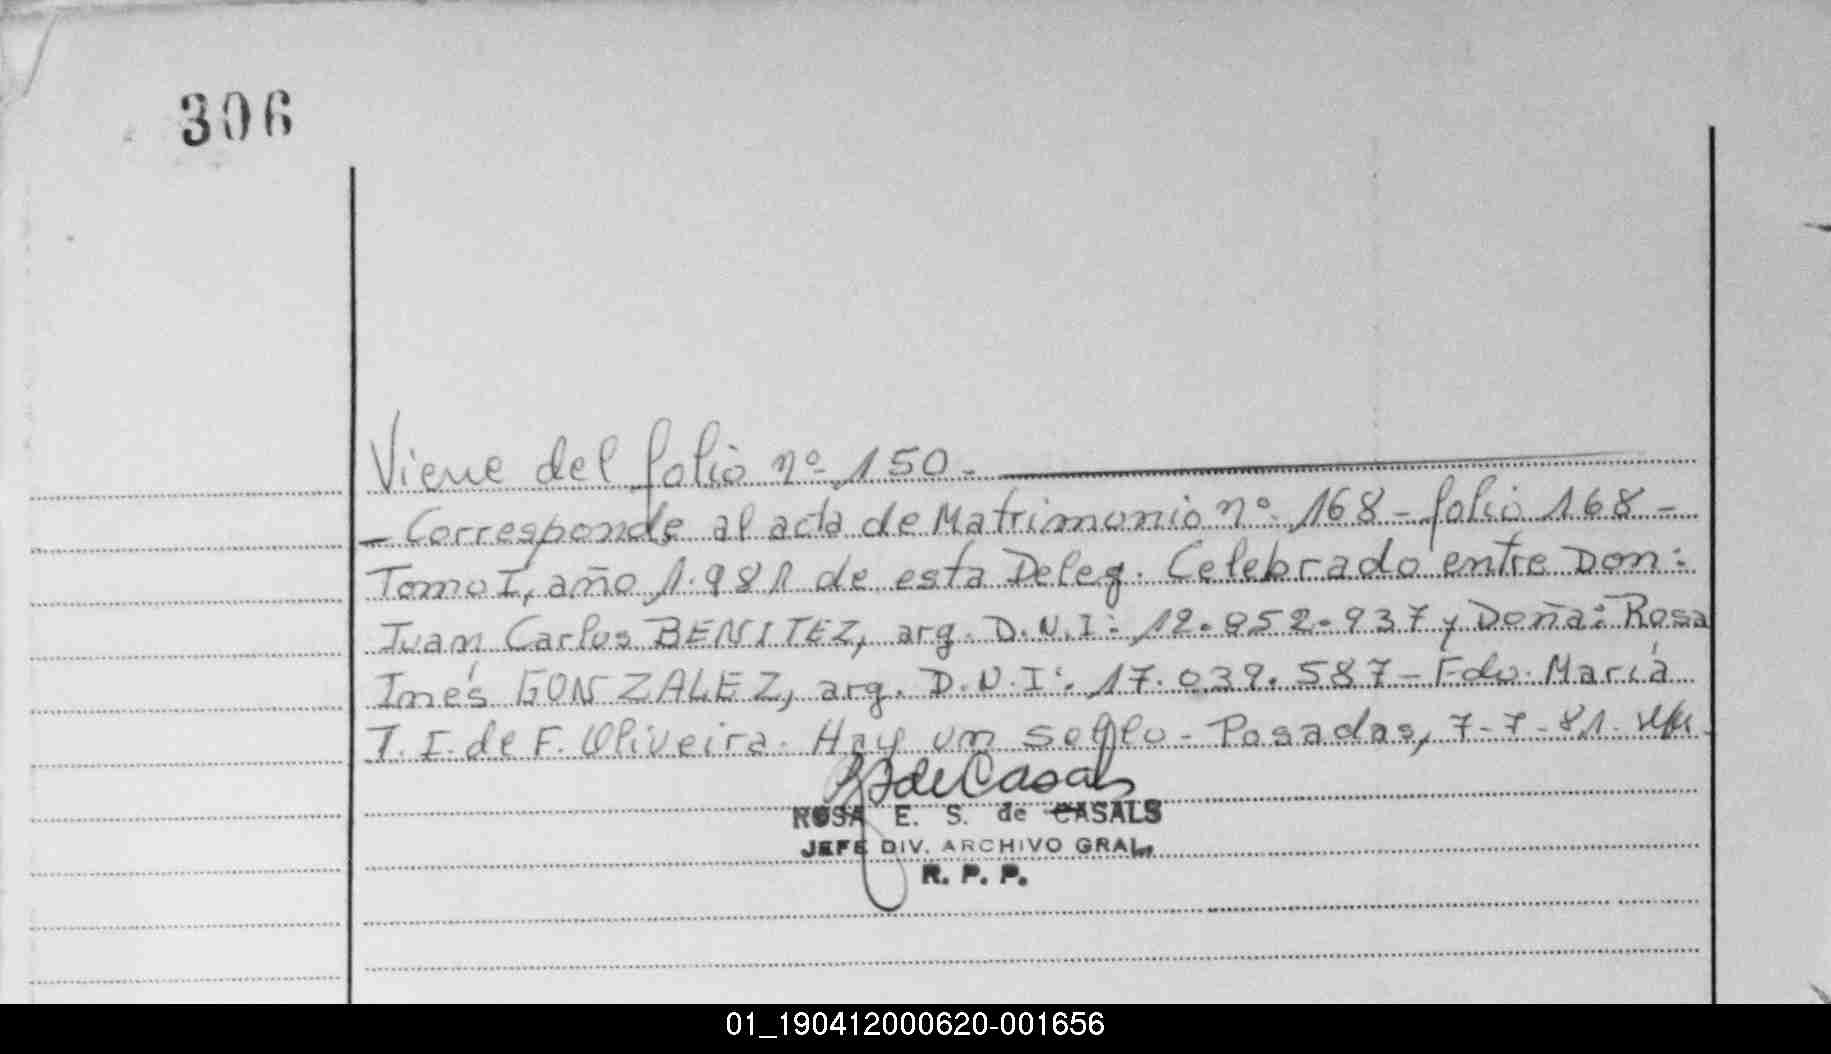 306
Viene del folio nº 150 -
- Corresponde al acta de Matrimonio nº 168 - folio 168 -
Tomo I, año 1.981 de esta Deleg. Celebrado entre Don:
Juan Carlos BENITEZ, arg. D.N.I: 12.852.937 y Doña: Rosa
Inés GONZALEZ, arg. D.N.I: 17.039.587 - Fdo. María
T. I. de F. Oliveira. Hay un sello - Posadas, 7-7-81.
de Casals
ROSA E. S. de CASALS
JEFE DIV. ARCHIVO GRAL.
R. P. P.
01_190412000620-001656